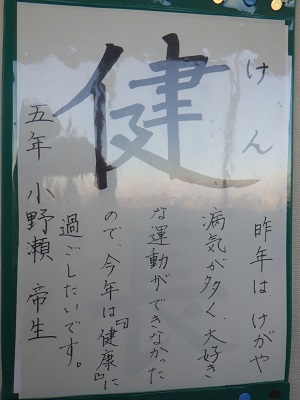 健
けん
昨年はけがや
病気が多く、大好き
な運動ができなかった
ので、今年は『健康』に
過ごしたいです。
五年 小野瀬 帝生